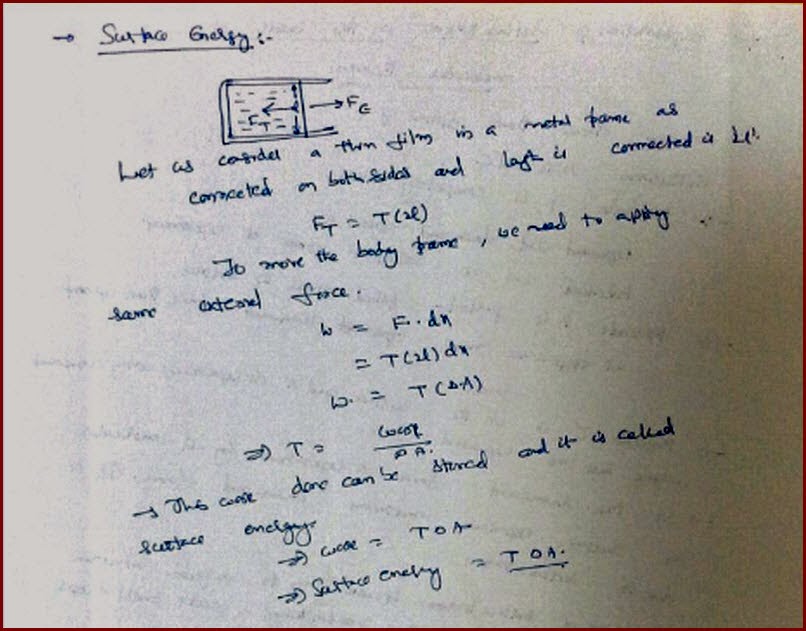 → Surface Energy :-
F_T → F_E
Let us consider a thin film in a metal frame as
connected on both sides and length is connected is 2l.
F_T = T(2l)
To move the body frame, we need to apply
same external force.
W = F.dx
= T(2l)dx
W. = T(ΔA)
⇒ T = work / ΔA.
→ This work done can be stored and it is called
surface energy.
⇒ work = TΔA
⇒ Surface energy = TΔA.